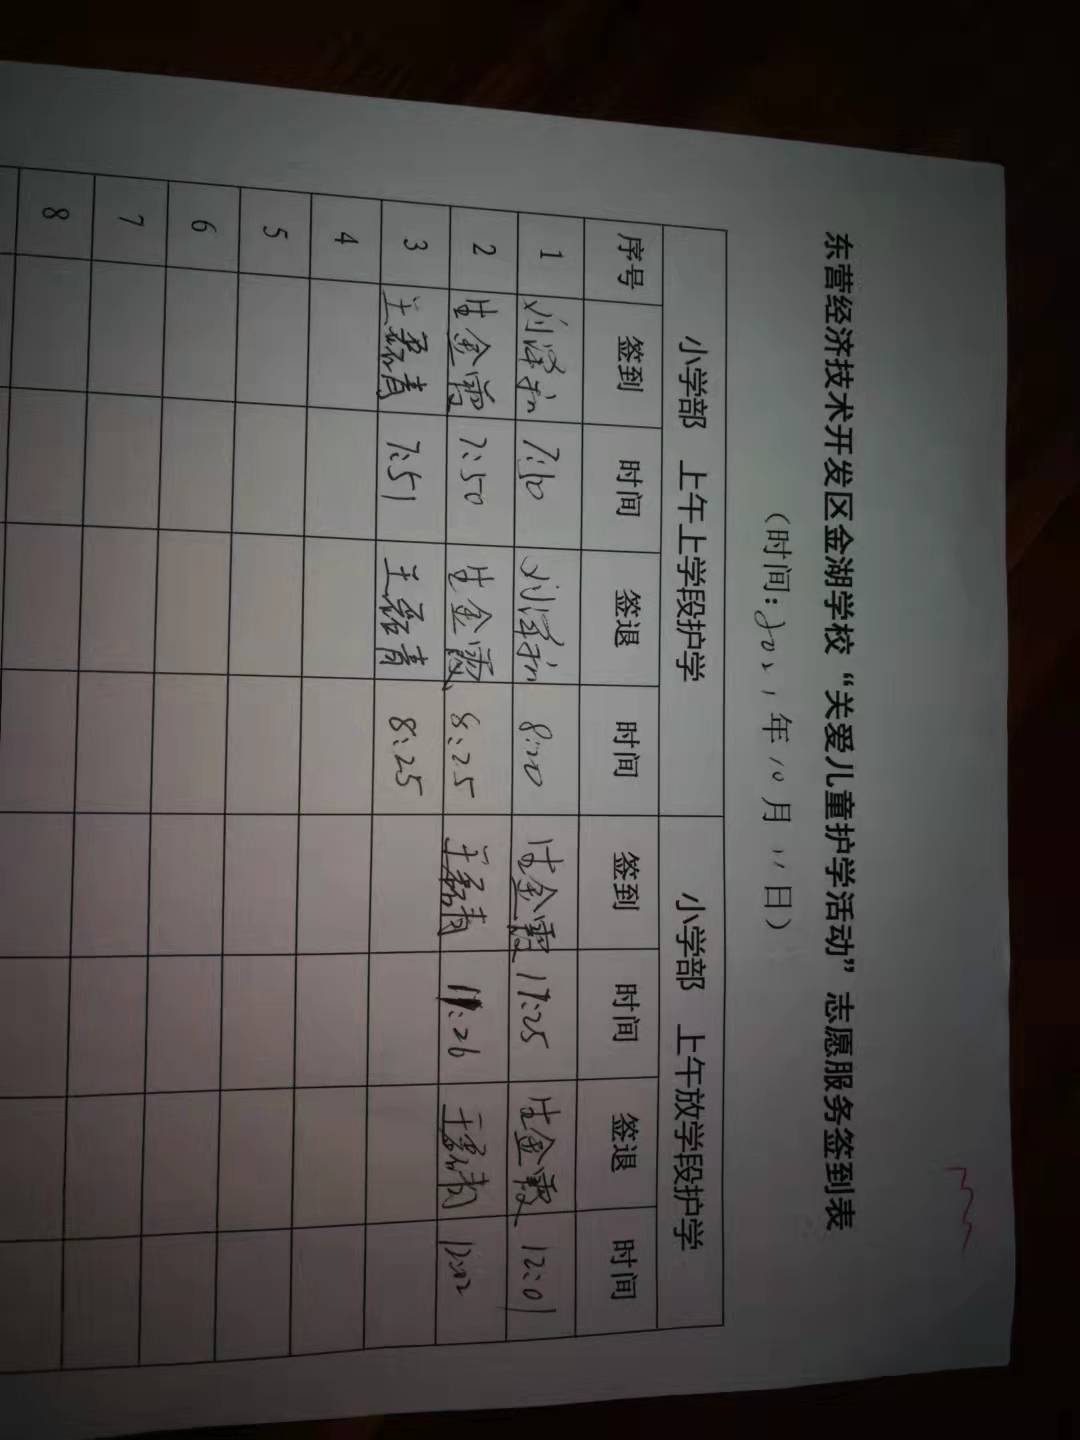 东营经济技术开发区金湖学校“关爱儿童护学活动”志愿服务签到表
（时间：2021年10月11日）
小学部 上午上学段护学 小学部 上午放学段护学
序号 签到 时间 签退 时间 签到 时间 签退 时间
1 刘泽 7:10 刘泽 8:20 生金霞 17:25 生金霞 12:01
2 生金霞 7:50 生金霞 8:25 王磊青 11:26 王磊青 12:02
3 王磊青 7:51 王磊青 8:25
4
5
6
7
8